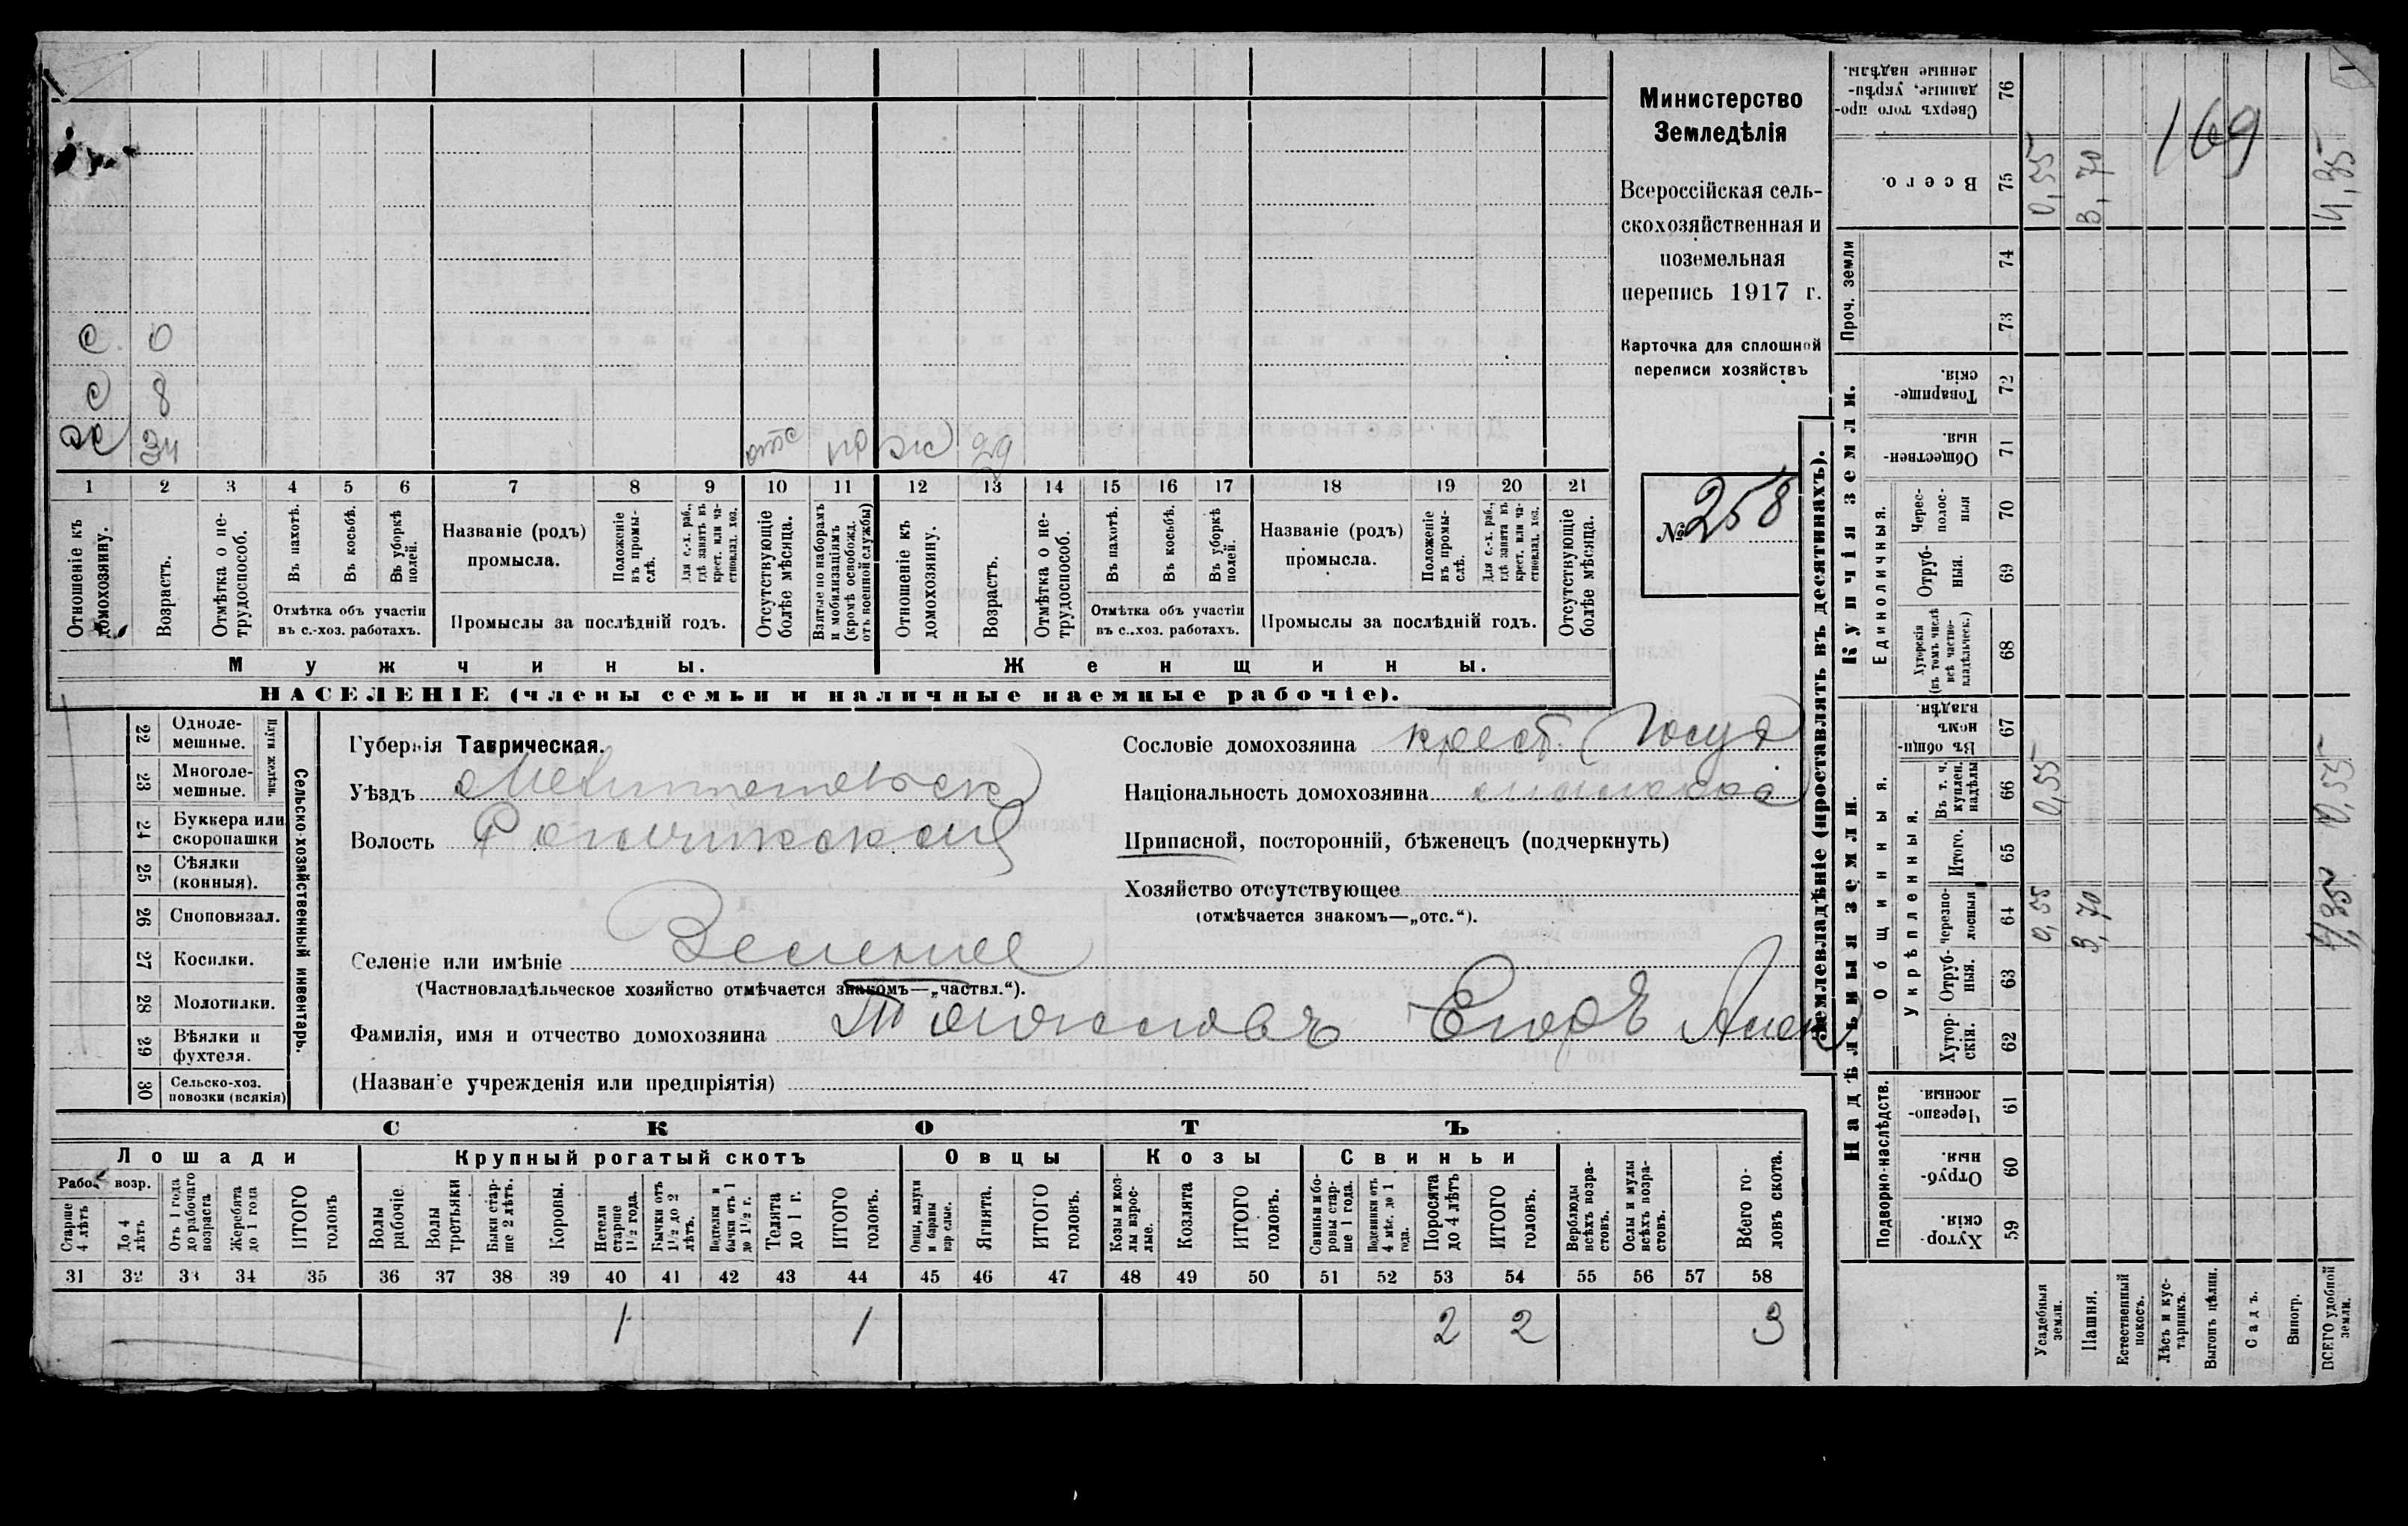 Министерство
Земледѣлія
Всероссійская сель-
скохозяйственная и
поземельная
перепись 1917 г.
Карточка для сплошной
переписи хозяйствъ
№ 258
169
с. 0
с 8
дх 34 отс но ж 29
1 2 3 4 5 6 7 8 9 10 11 12 13 14 15 16 17 18 19 20 21
Отношеніе къ домохозяину.
Возрастъ.
Отмѣтка о не-трудоспособ.
Въ пахотѣ.
Въ косьбѣ.
Въ уборкѣ полей.
Отмѣтка объ участіи
въ с.-хоз. работахъ.
Названіе (родъ)
промысла.
Положеніе въ промы-слѣ.
Для с.-х. раб., гдѣ занятъ въ крест. или ча-стновлад. хоз.
Промыслы за послѣдній годъ.
Отсутствующіе болѣе мѣсяца.
Взятые по наборамъ и мобилизаціямъ (кромѣ освобожд. отъ военной службы)
Отношеніе къ домохозяину.
Возрастъ.
Отмѣтка о не-трудоспособ.
Въ пахотѣ.
Въ косьбѣ.
Въ уборкѣ полей.
Отмѣтка объ участіи
въ с.-хоз. работахъ.
Названіе (родъ)
промысла.
Положеніе въ промы-слѣ.
Для с.-х. раб., гдѣ занята въ крест. или ча-стновлад. хоз.
Промыслы за послѣдній годъ.
Отсутствующіе болѣе мѣсяца.
Мужчины. Женщины.
НАСЕЛЕНІЕ (члены семьи и наличные наемные рабочіе).
Сельско-хозяйственный инвентарь.
Плуги желѣзн.
22 Одноле-мешные.
23 Многоле-мешные.
24 Буккера или скоропашки
25 Сѣялки (конныя).
26 Сноповязал.
27 Косилки.
28 Молотилки.
29 Вѣялки и фухтеля.
30 Сельско-хоз. повозки (всякія)
Губернія Таврическая.
Уѣздъ Мелитопольск
Волость
Селеніе или имѣніе
(Частновладѣльческое хозяйство отмѣчается знакомъ—„частвл.“).
Фамилія, имя и отчество домохозяина Егоръ
(Названіе учрежденія или предпріятія)
Сословіе домохозяина крест. (Госуд
Національность домохозяина
Приписной, посторонній, бѣженецъ (подчеркнуть)
Хозяйство отсутствующее
(отмѣчается знакомъ—„отс.“).
СКОТЪ
Лошади Крупный рогатый скотъ Овцы Козы Свиньи
Рабоч. возр.
Старше 4 лѣтъ
До 4 лѣтъ
Отъ 1 года до рабочаго возраста
Жеребята до 1 года
ИТОГО головъ
Волы рабочіе
Волы третьяки
Быки стар-ше 2 лѣтъ.
Коровы.
Нетели старше 1½ года.
Бычки отъ 1½ до 2 лѣтъ.
Подтелки и бычки отъ 1 до 1½ г.
Телята до 1 г.
ИТОГО головъ.
Овцы, валухи и бараны взрослые.
Ягнята.
ИТОГО головъ.
Козы и коз-лы взрос-лые.
Козлята
ИТОГО головъ.
Свиньи и бо-ровы стар-ше 1 года.
Подсвинки отъ 4 мѣс. до 1 года.
Поросята до 4 лѣтъ
ИТОГО головъ.
Верблюды всѣхъ возра-стовъ.
Ослы и мулы всѣхъ возра-стовъ.
Всего го-ловъ скота.
31 32 33 34 35 36 37 38 39 40 41 42 43 44 45 46 47 48 49 50 51 52 53 54 55 56 57 58
1 1 2 2 3
Землевладѣніе (проставлять въ десятинахъ).
Надѣльныя земли. Купчія земли. Проч. земли
Подворно-наслѣдств. Общинныя. Единоличныя.
Укрѣпленныя.
59 Хутор-скія.
60 Отруб-ныя.
61 Черезпо-лосныя.
62 Хутор-скія.
63 Отруб-ныя.
64 Черезпо-лосныя 0,55 3,70
65 Итого.
66 Въ т. ч. куплен. надѣлы 0,55
67 Въ общин-номъ владѣн.
68 Хуторскія (въ томъ числѣ всѣ частно-владѣльческ.)
69 Отруб-ныя.
70 Черес-полос-ныя
71 Обществен-ныя.
72 Товарище-скія.
73
74
75 Всего. 0,55 3,70
76 Сверхъ того про-данные, укрѣп-ленные надѣлы.
Усадебныя земли.
Пашня.
Естественный покосъ.
Лѣсъ и кус-тарникъ.
Выгонъ цѣлин.
Садъ.
Виногр.
ВСЕГО удобной земли.